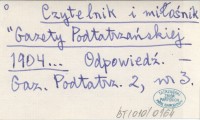 ° Czytelnik i miłośnik
"Gazety Podtatrzańskiej
1904... Odpowiedź. –
Gaz. Podtatrz. 2, nr 3.
bT/010/0164